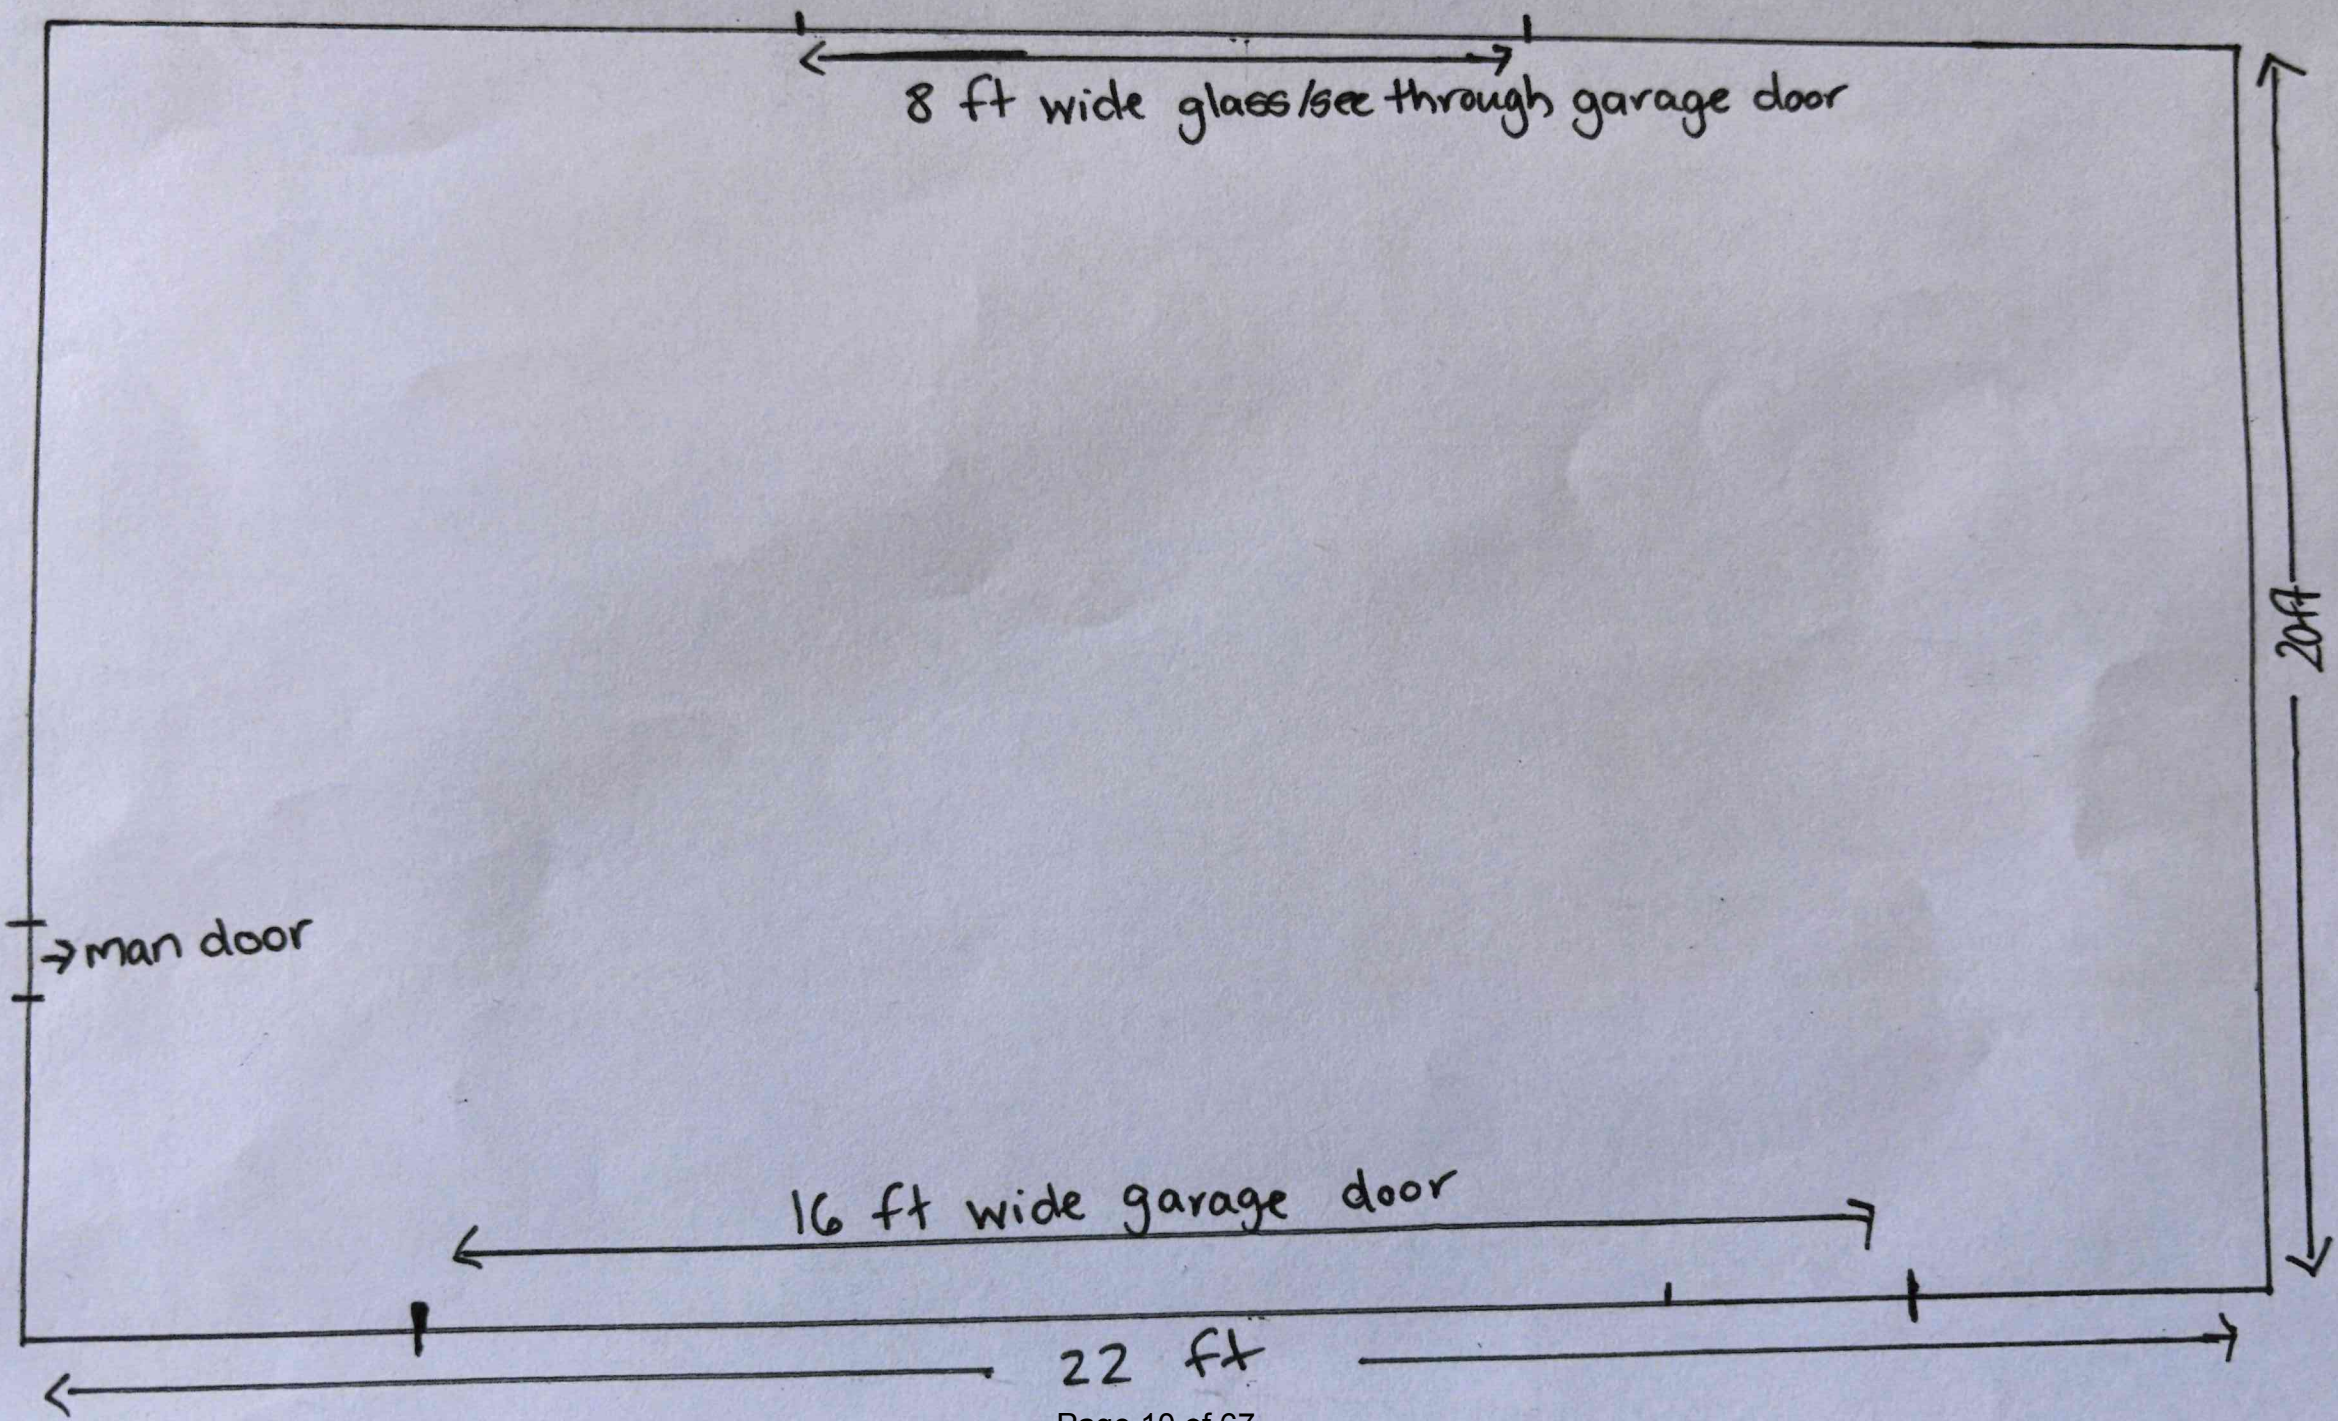 8 ft wide glass/see through garage door
20ft
→man door
16 ft wide garage door
22 ft
Page 10 of 67